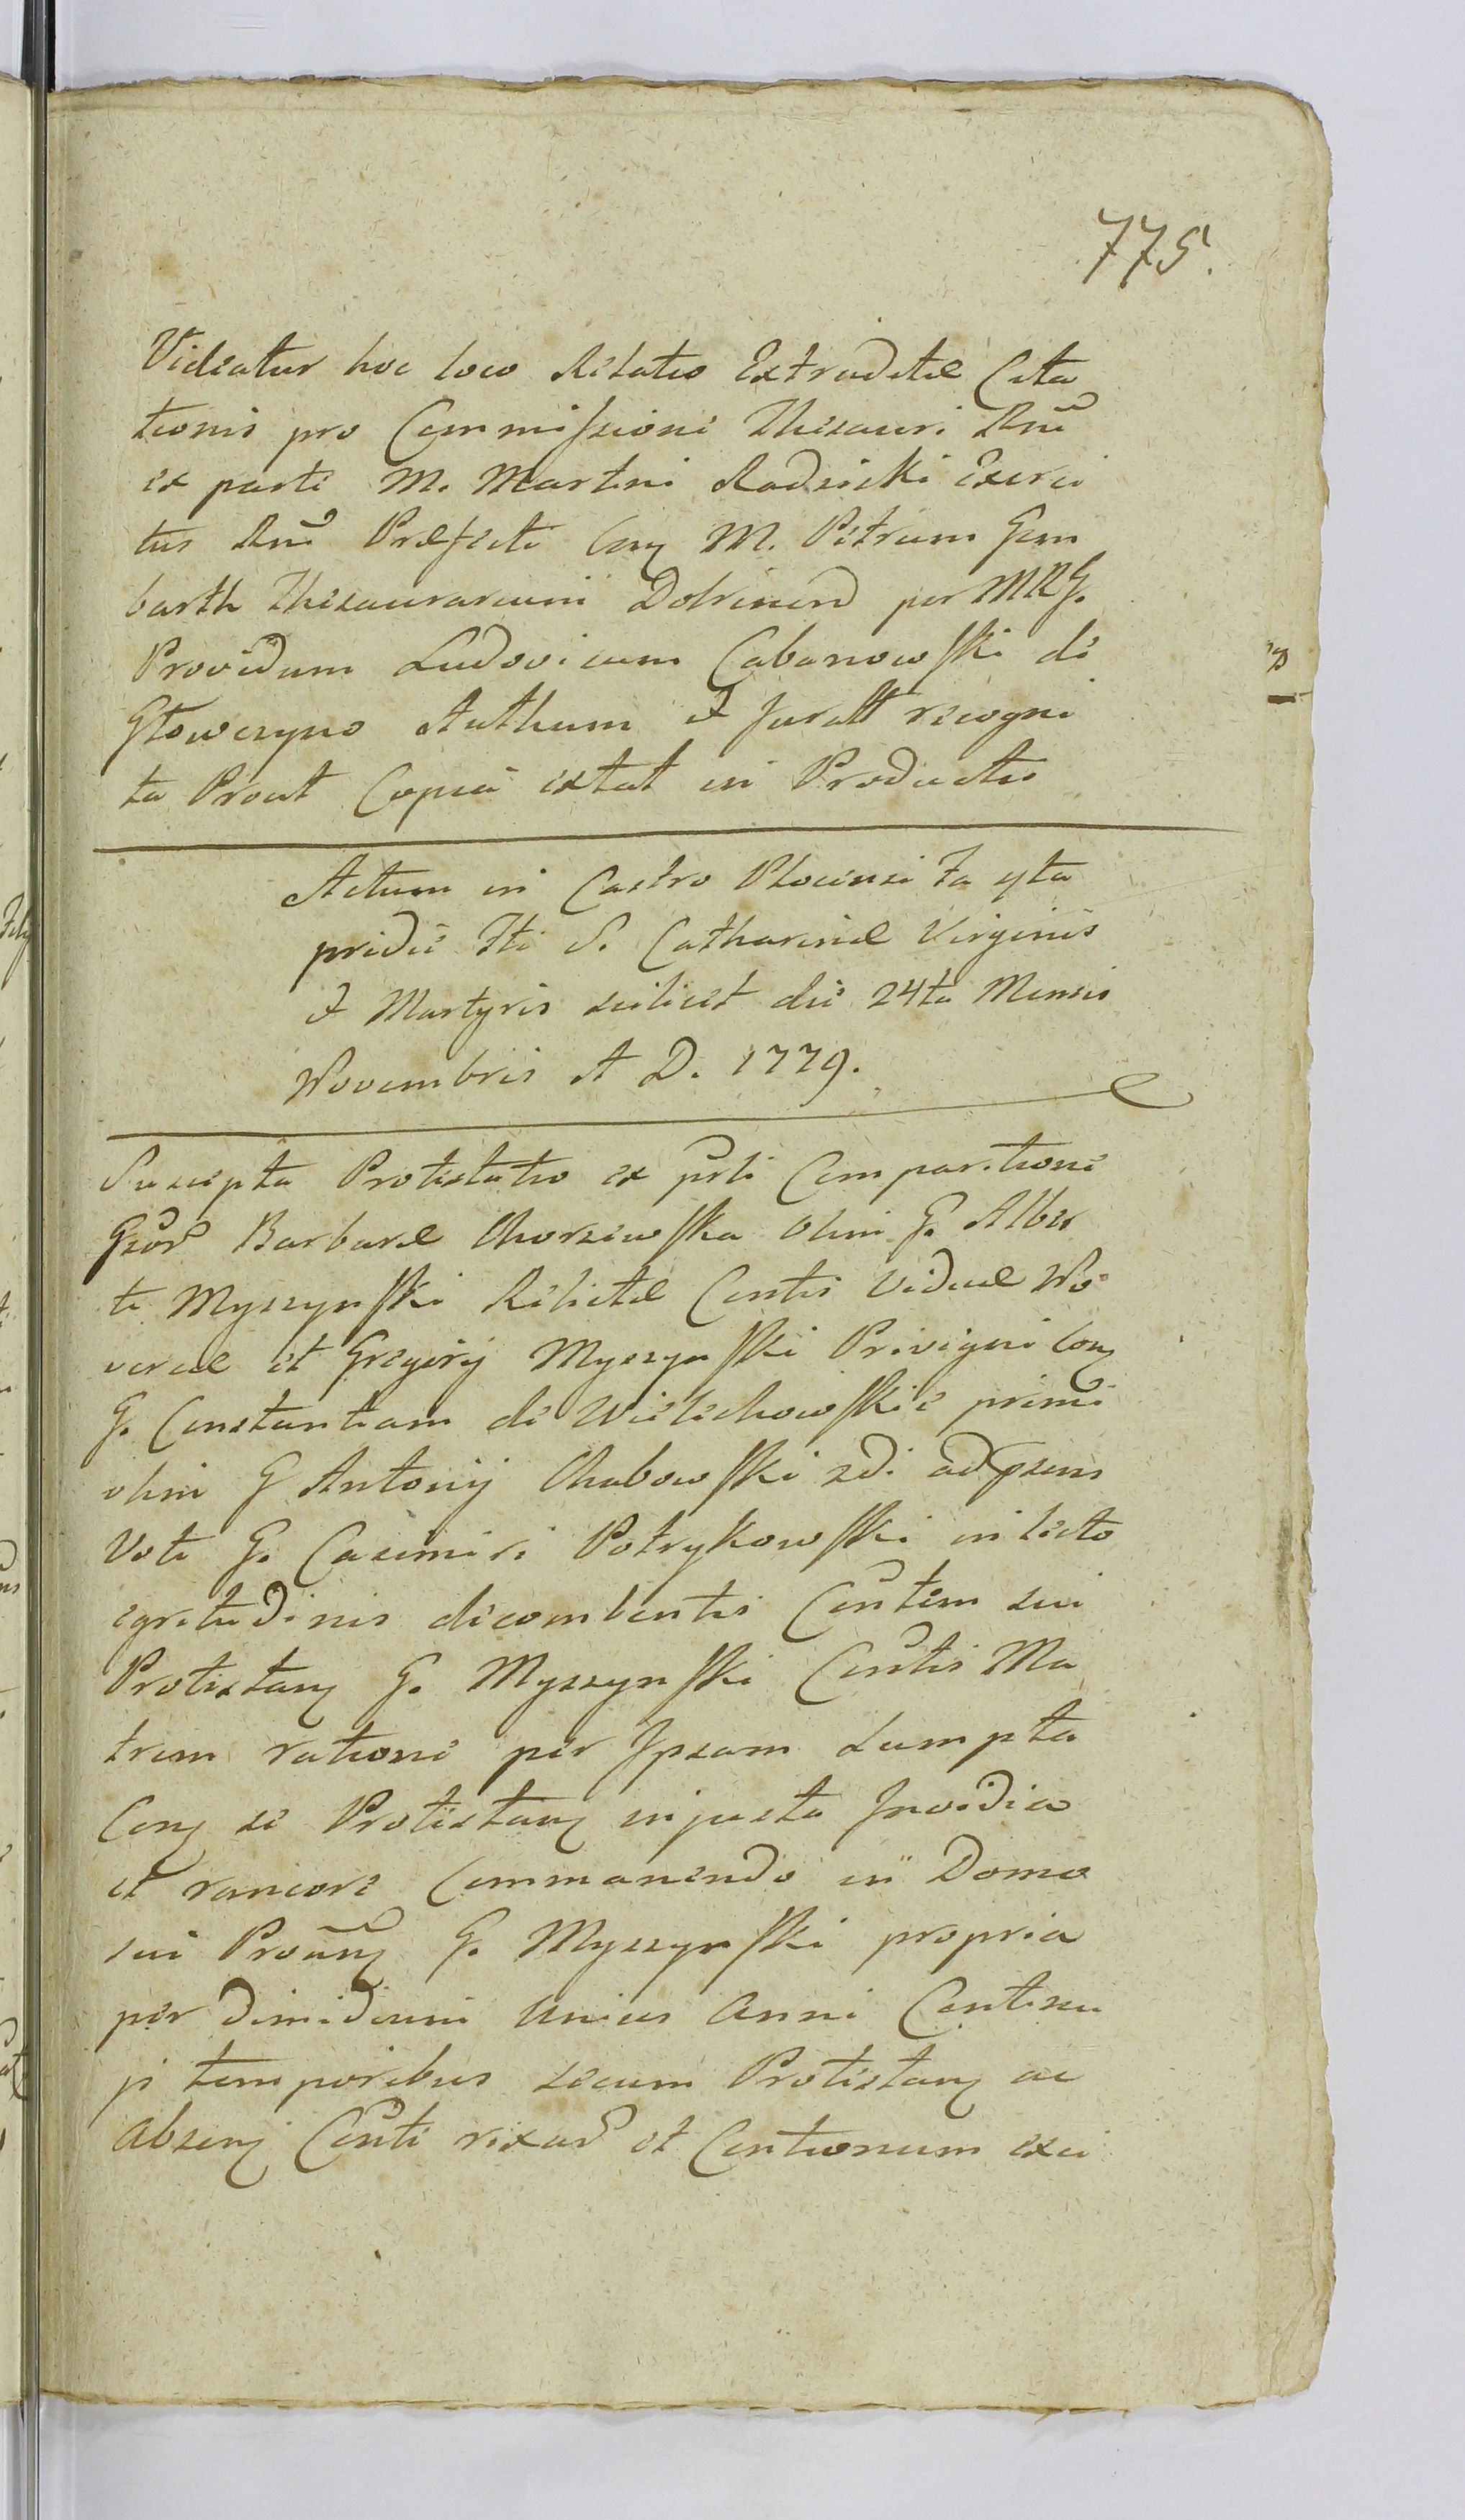 775.
Videatur hoc loco Relatio Extraditæ Cita
tionis pro Commissione Thesauri Rni
ex parte M. Martini Radzicki Exerci
tus Rni Præfecti con M. Petrum Gem
barth Thesaurarium Dobrinen per MRG.
Providum Ludovicum Cabanowski de
Głowczyno Authum et Juratt recogni
ta Prout Copia extat in Productis
Actum in Castro Plocensi fa 4ta
pridie fti S. Catharinæ Virginis
et Martyris scilicet die 24ta Mensis
Novembris A D. 1779.
Suscepta Protestatio ex prti Comparitione
Gsor Barbaræ Chorzewska olim G. Alber
ti Myszynski Relictæ Contis Viduæ No
vercæ et Gregorij Myszynski Privigni con
G. Constantiam de Wielichowskie primi
olim G Antonij Chabowski 2di ad psens
Voti G. Casimiri Potrykowski in lecto
egritudinis decombentis Contem sui
Protestan G. Myszynski Contis Ma
trem ratione per Ipsam sumpta
Con se Protestan injusta Invidia
et rancore Commanendo in Domo
sui Proan G. Myszynski propria
per dimidium Unius Anni Continu
js temporibus secum Protestan ac
absen Conti rixar et Contionum exci